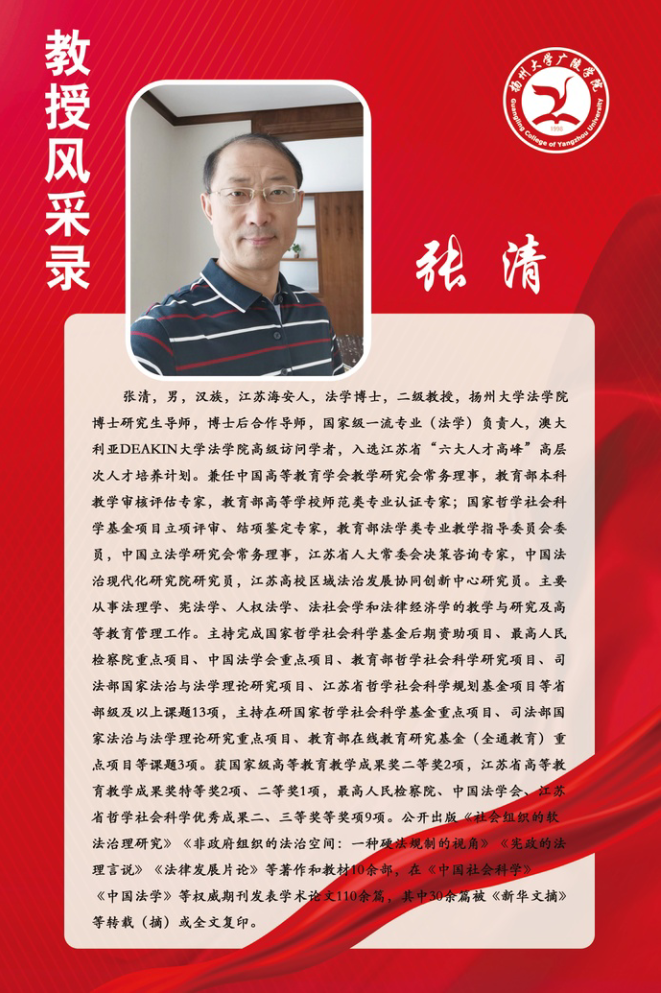 教授风采录
扬州大学广陵学院
Guangling College of Yangzhou University
1999
张清
张清，男，汉族，江苏海安人，法学博士，二级教授，扬州大学法学院
博士研究生导师，博士后合作导师，国家级一流专业（法学）负责人，澳大
利亚DEAKIN大学法学院高级访问学者，入选江苏省“六大人才高峰”高层
次人才培养计划。兼任中国高等教育学会教学研究会常务理事，教育部本科
教学审核评估专家，教育部高等学校师范类专业认证专家；国家哲学社会科
学基金项目立项评审、结项鉴定专家，教育部法学类专业教学指导委员会委
员，中国立法学研究会常务理事，江苏省人大常委会决策咨询专家，中国法
治现代化研究院研究员，江苏高校区域法治发展协同创新中心研究员。主要
从事法理学、宪法学、人权法学、法社会学和法律经济学的教学与研究及高
等教育管理工作。主持完成国家哲学社会科学基金后期资助项目、最高人民
检察院重点项目、中国法学会重点项目、教育部哲学社会科学研究项目、司
法部国家法治与法学理论研究项目、江苏省哲学社会科学规划基金项目等省
部级及以上课题13项，主持在研国家哲学社会科学基金重点项目、司法部国
家法治与法学理论研究重点项目、教育部在线教育研究基金（全通教育）重
点项目等课题3项。获国家级高等教育教学成果奖二等奖2项，江苏省高等教
育教学成果奖特等奖2项、二等奖1项，最高人民检察院、中国法学会、江苏
省哲学社会科学优秀成果二、三等奖等奖项9项。公开出版《社会组织的软
法治理研究》《非政府组织的法治空间：一种硬法规制的视角》《宪政的法
理言说》《法律发展片论》等著作和教材10余部，在《中国社会科学》
《中国法学》等权威期刊发表学术论文110余篇，其中30余篇被《新华文摘》
等转载（摘）或全文复印。